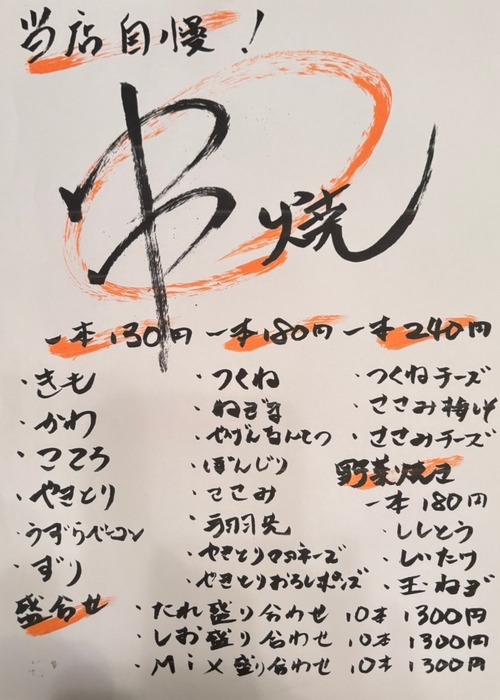 当店自慢!
串焼
一本130円
・きも
・かわ
・こころ
・やきとり
・うずらベーコン
・ずり
一本180円
・つくね
・ねぎま
・やげんなんこつ
・ぼんじり
・ささみ
・手羽先
・やきとりマヨネーズ
・やきとりおろしポンズ
一本240円
・つくねチーズ
・ささみ梅しそ
・ささみチーズ
野菜焼き
一本180円
・ししとう
・しいたけ
・玉ねぎ
盛合せ
・たれ盛り合わせ 10本 1300円
・しお盛り合わせ 10本 1300円
・Mix盛り合わせ 10本 1300円